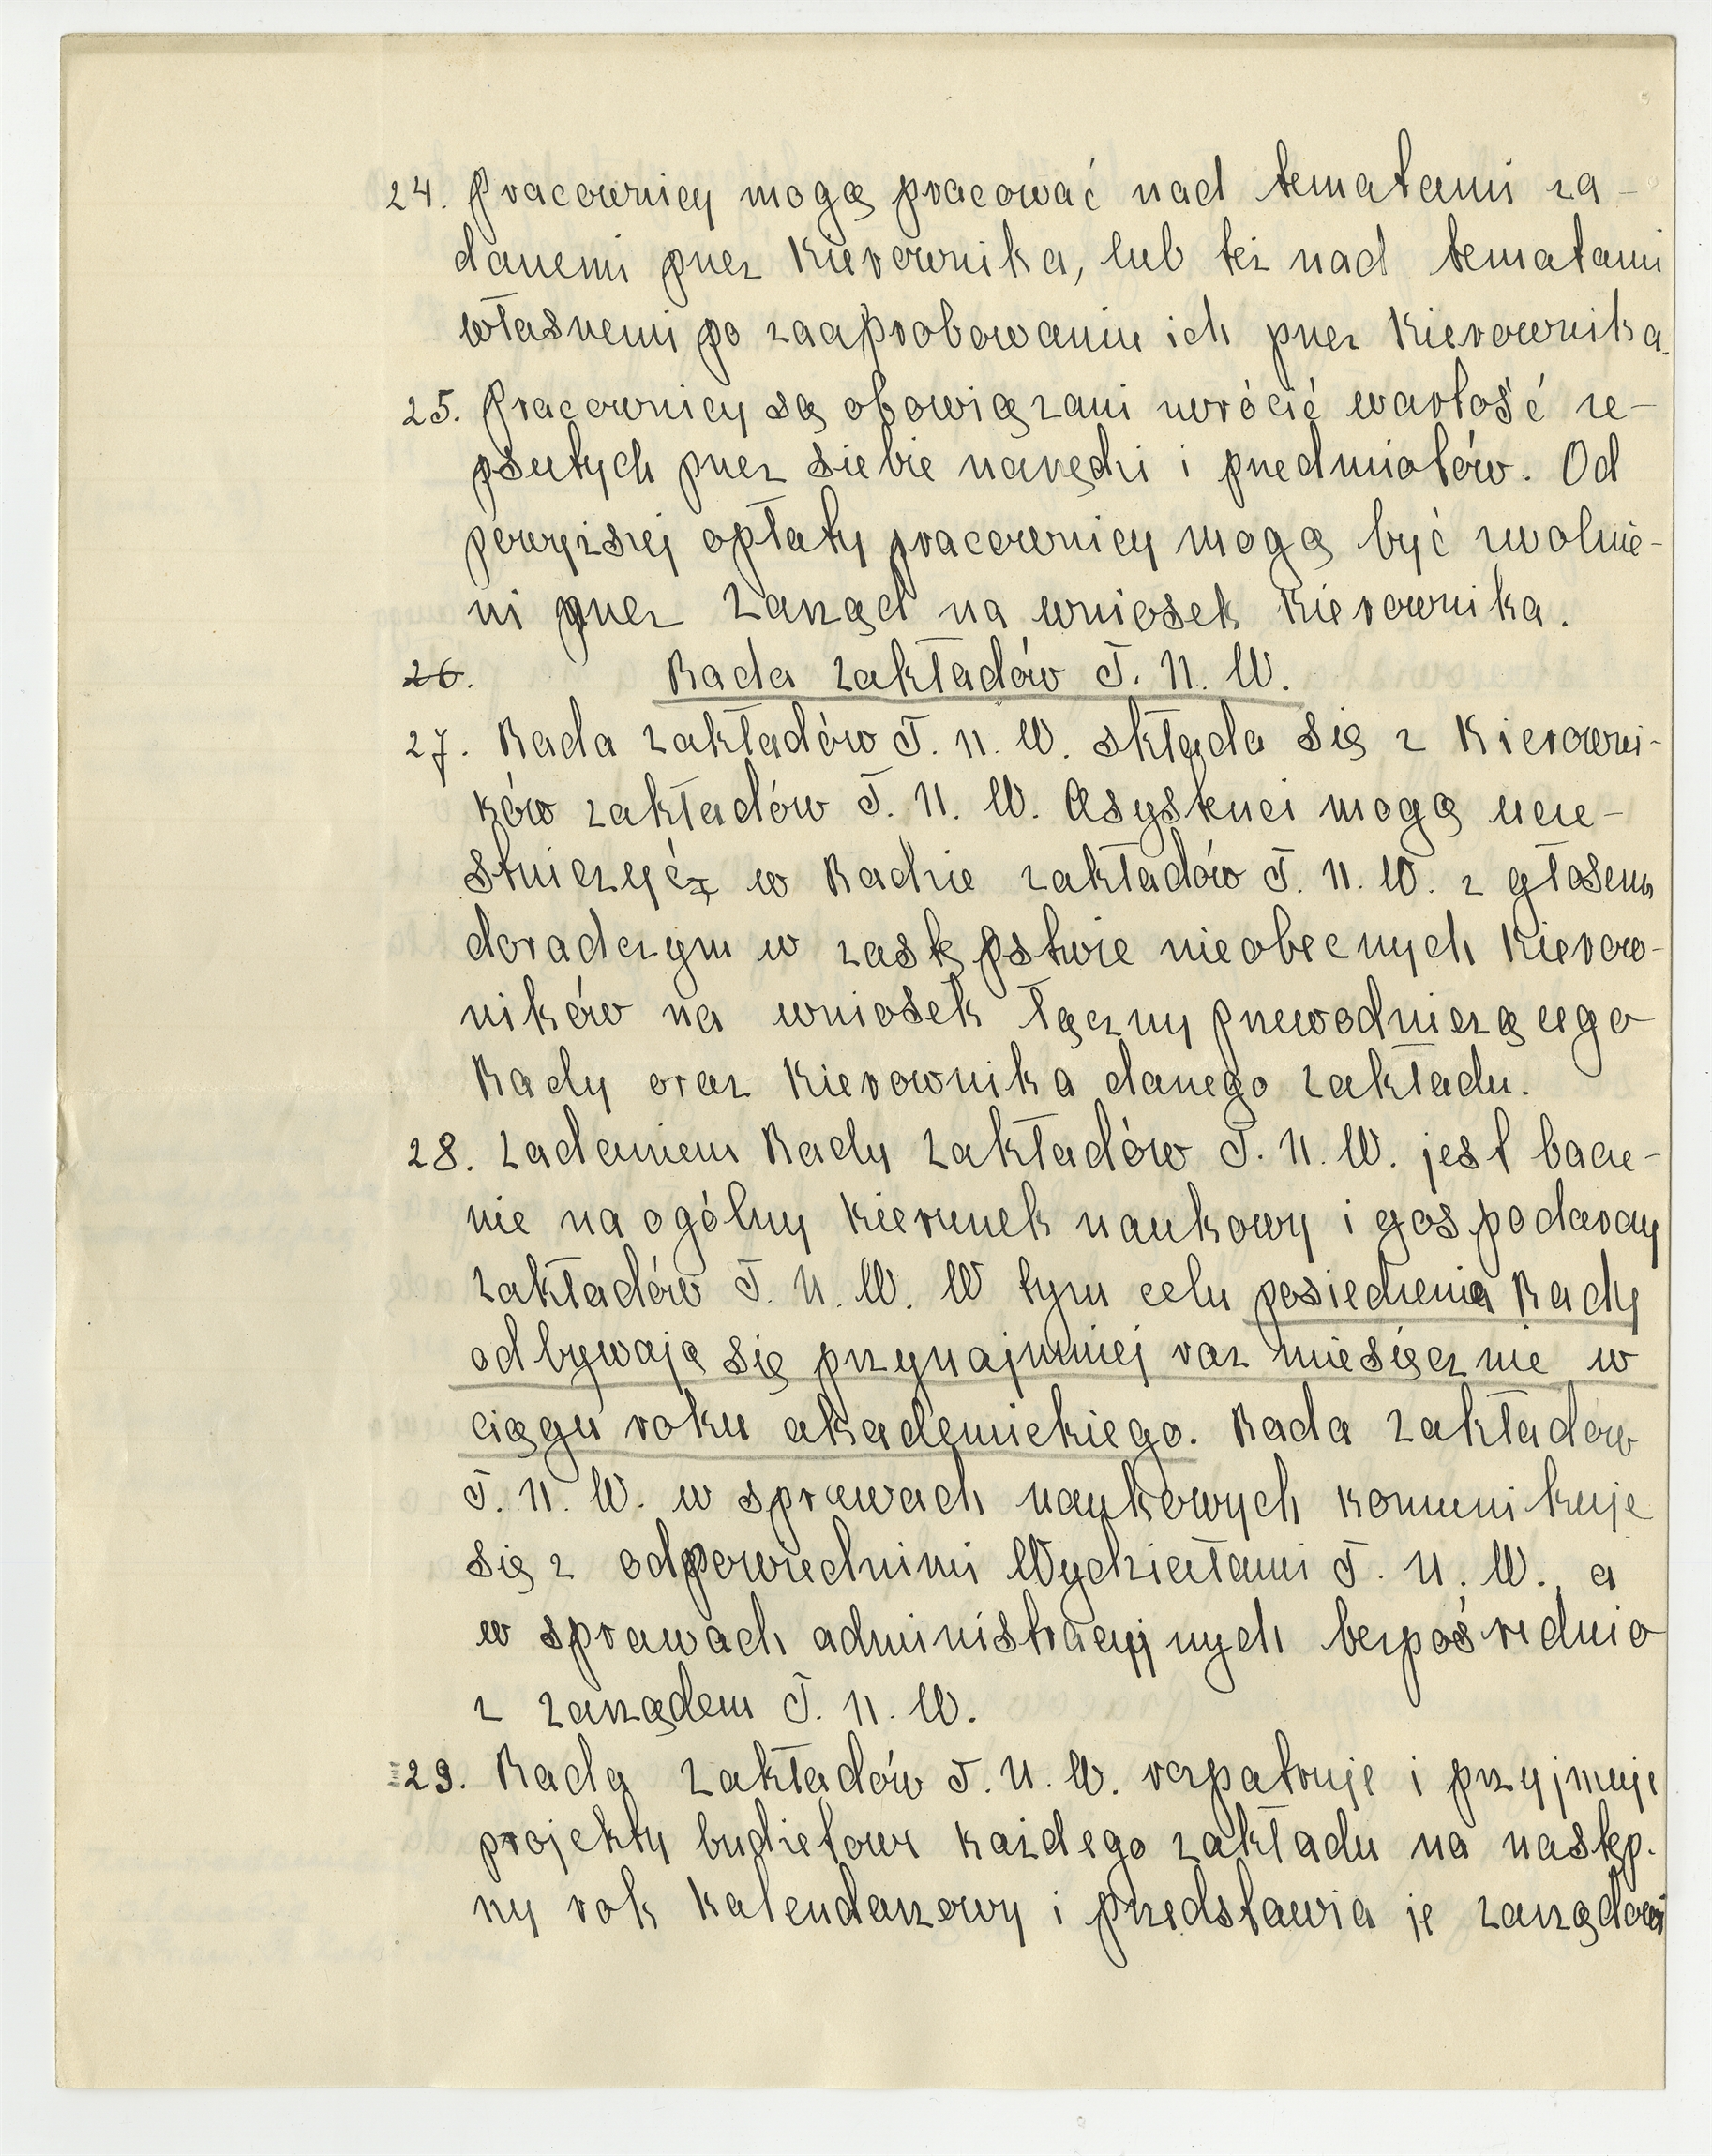 24. Pracownicy mogą pracować nad tematami za-
danemi przez Kierownika, lub też nad tematami
własnemi po zaaprobowaniu ich przez Kierownika.
25. Pracownicy są obowiązani zwrócić wartość ze-
psutych przez siebie narzędzi i przedmiotów. Od
powyższej opłaty pracownicy mogą być zwolnie-
ni przez Zarząd na wniosek Kierownika.
26. Rada Zakładów T. N. W.
27. Rada Zakładów T. N. W. składa się z Kierowni-
ków zakładów T. N. W. Asystenci mogą ucze-
stniczyć w Radzie zakładów T. N. W. z głosem
doradczym w zastępstwie nieobecnych Kierow-
ników na wniosek łączny przewodniczącego
Rady oraz Kierownika danego zakładu.
28. Zadaniem Rady Zakładów T. N. W. jest bacze-
nie na ogólny kierunek naukowy i gospodarczy
Zakładów T. N. W. W tym celu posiedzenia Rady
odbywają się przynajmniej raz miesięcznie w
ciągu roku akademickiego. Rada Zakładów
T. N. W. w sprawach naukowych komunikuje
się z odpowiednimi Wydziałami T. N. W., a
w sprawach administracyjnych bezpośrednio
z Zarządem T. N. W.
29. Rada Zakładów T. N. W. rozpatruje i przyjmuje
projekty budżetowe każdego zakładu na następ-
ny rok kalendarzowy i przedstawia je Zarządowi